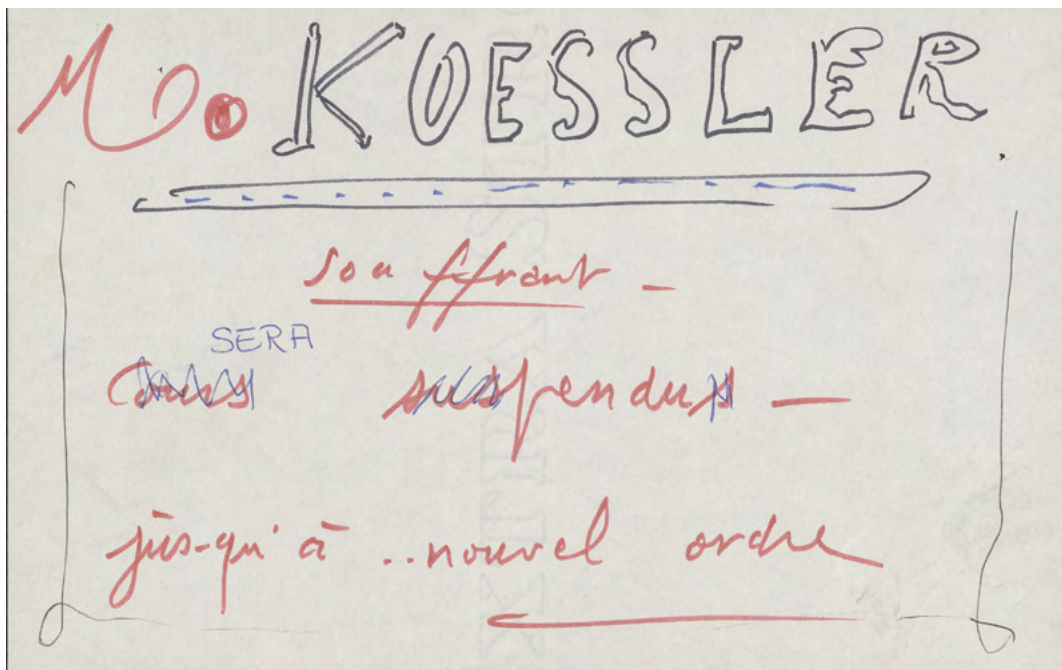 Mr. KOESSLER
souffrant -
SERA
Cours suspendus —
jus-qu'à ..nouvel ordre